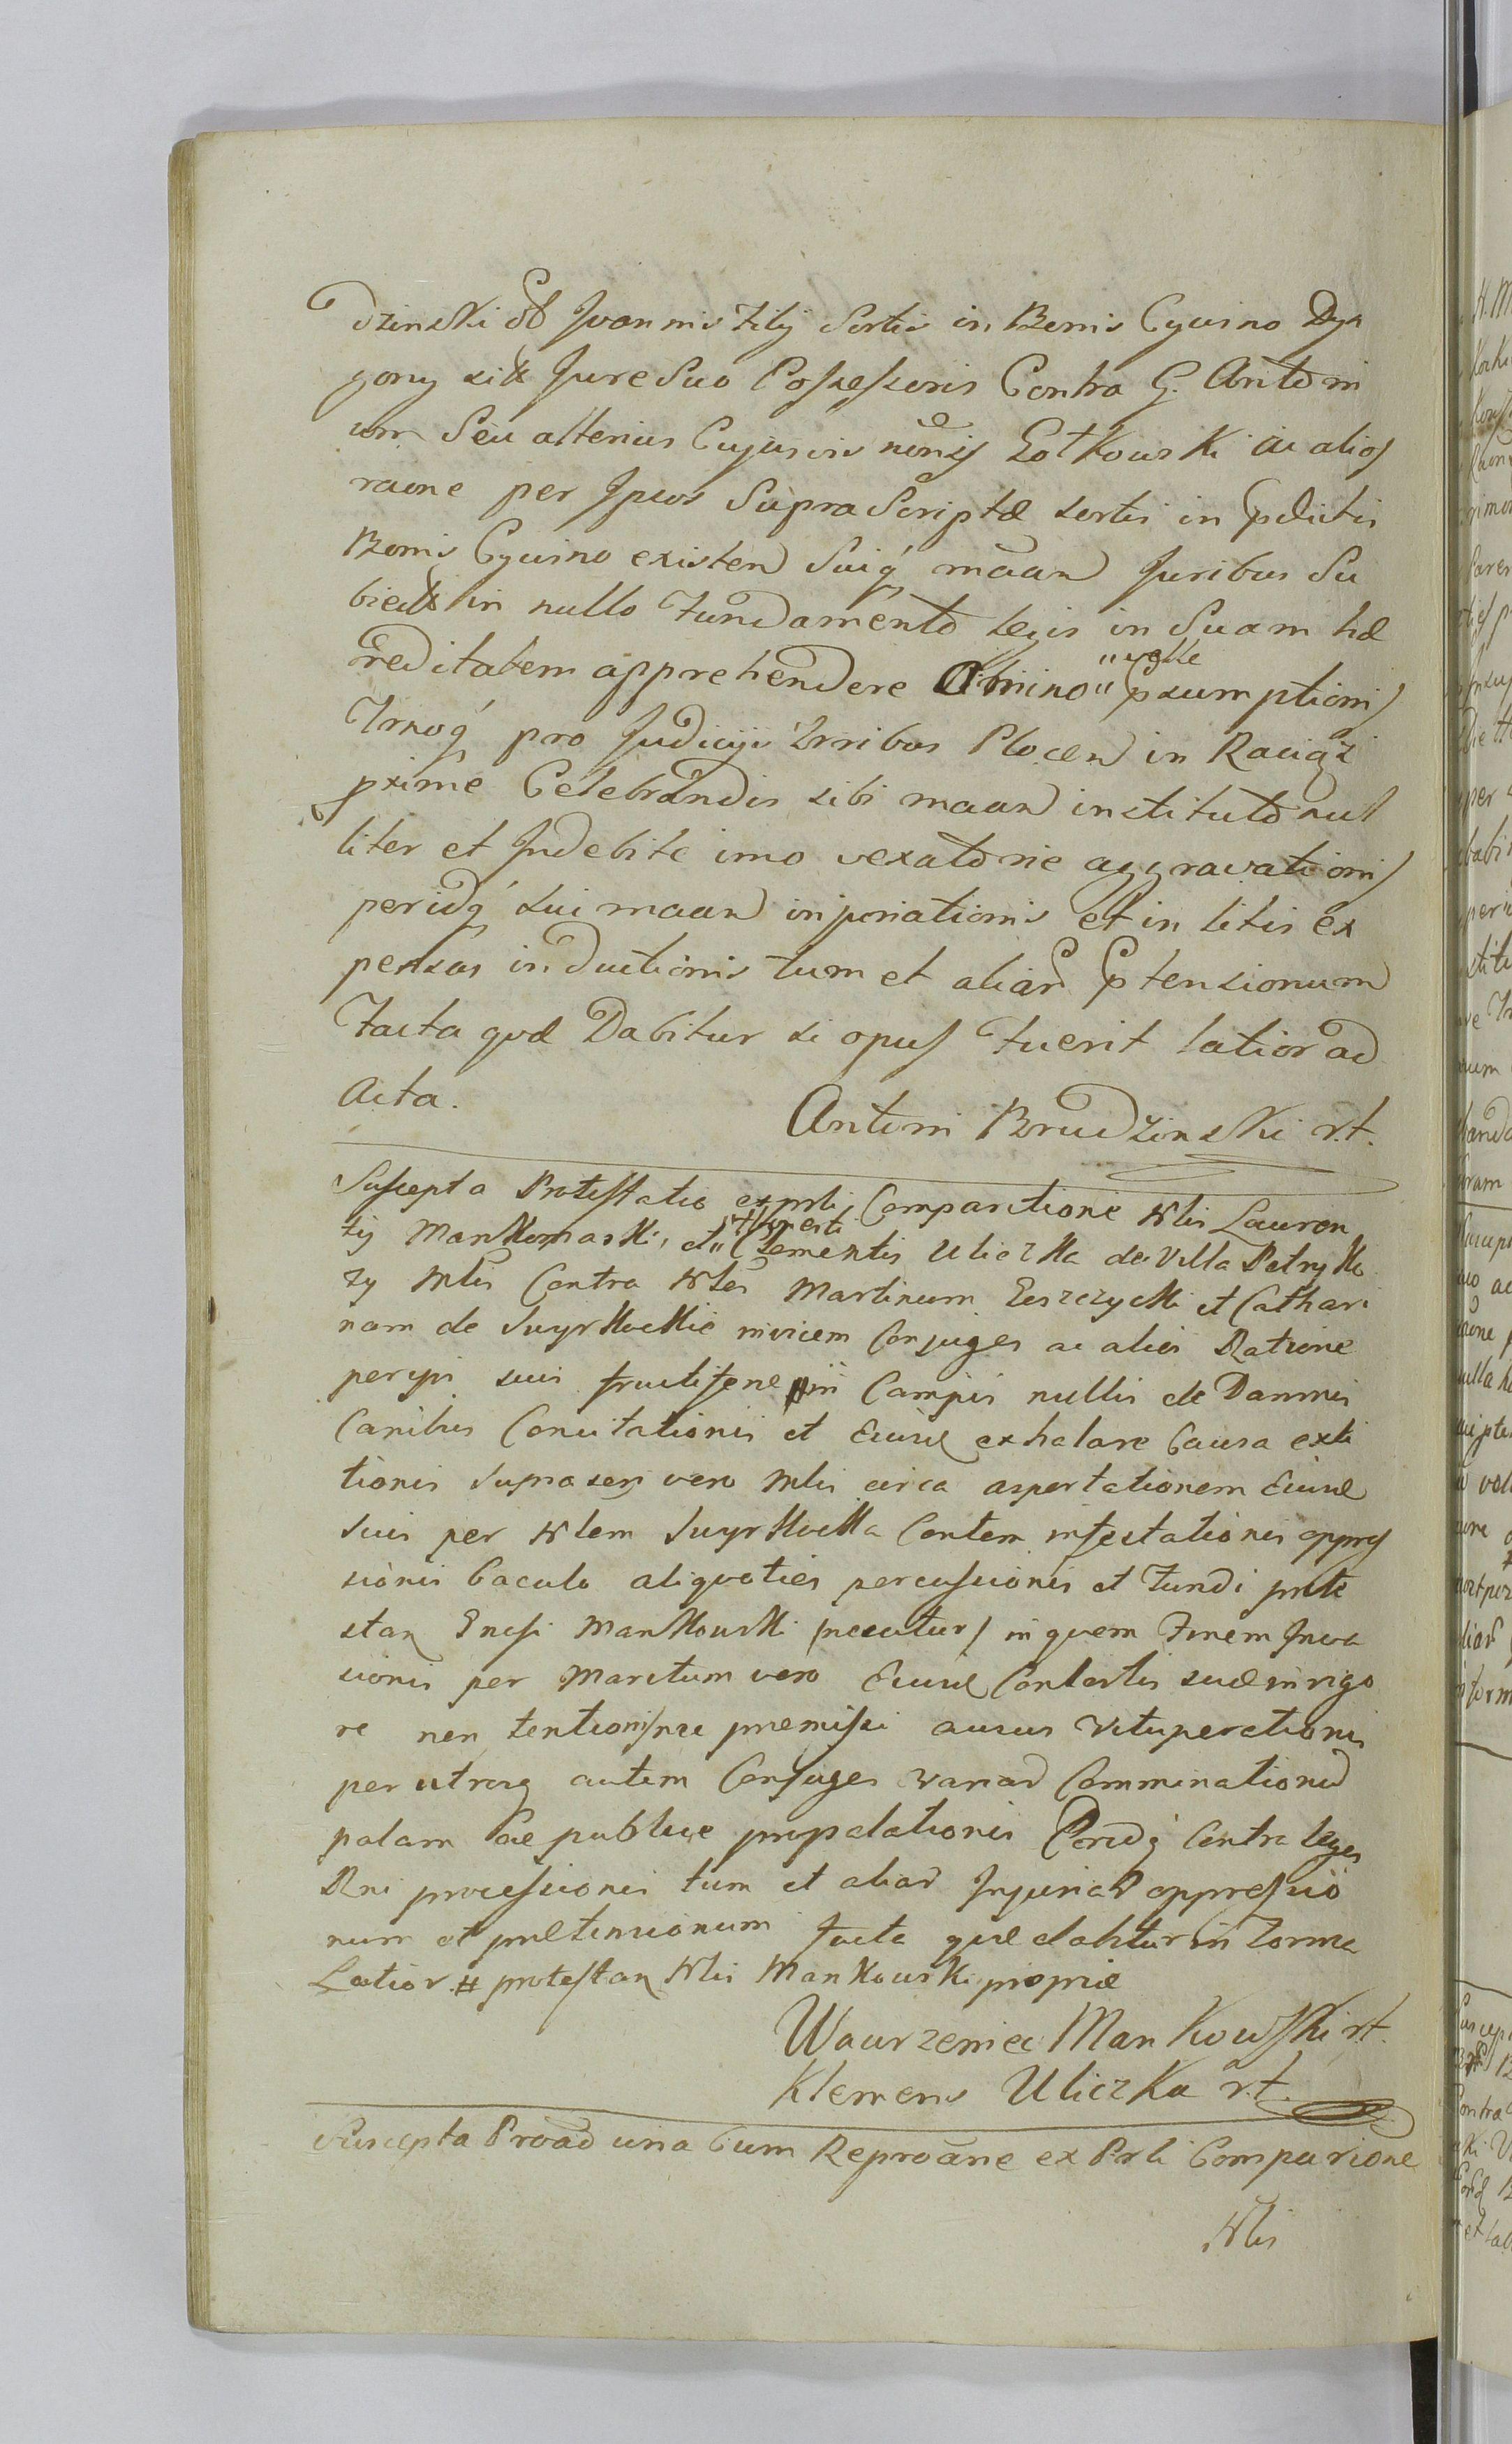 dzinski Joannis Filij Sortis in Bonis Cywino Dyn
gony sitæ Jure Suo Possessoris Contra G. Antoni
um Seu alterius Cujusvis nōīs Łotkowski ac alios
raōne per Ipsos Supra Scriptæ sortis in pdictis
Bonis Cywino existen Suiq́ māan Juribus Su
biectæ in nullo Fundamento legis in Suam hæ
reditatem apprehendere Omino " velle " psumptionis
Jrnoq́ pro Judicijs Trribus Plocen in Raciąż
pxime Celebrandis sibi maan instituto nul
liter et Indebite imo vexatorie aggravationis
peridq́ sui maan injuriationis et in litis ex
pensas inductionis tum et aliar ptensionum
Facta quæ Dabitur si opus Fuerit latior ad
Acta.
Antoni Brudzinski r.t.
Suscepta Protestatio ex prli Comparitione Nlis Lauren
tij Mankowski, et " Honesti " Clementis Uliczka de Villa Petryko
zy Mlis Contra Nles Martinum Leszczycki et Cathari
nam de Swyrkockie invicem Conjuges ac alios Ratione
per ipsos suis in Campis nullis de Damnis
Canibus Concitationis et Equæ exhalare Causa exti
tionis Suprascrj vero Mlis circa asportationem Equæ
suis per Nlem Swyrkocka Contem infestationis oppres
sionis baculo aliquoties percussionis et Fundi prote
stan Mankowski in quem Finem Inva
sionis per Maritum vero Consortis suæ in rigo
re non tentionis præmissi ausus Vituperationis
per utrosq autem Conjuges variar Comminationum
palam ac publice propalationis Peridq́ Contra leges
Rni processionis tum et aliar Injuriar oppressio
num et prætensionum facta quæ dabitur in Forma
Latior. # protestan Nlis Mankowski propriæ
Wawrzeniec Mankowski r.t.
Klemens Uliczka r.t.
Suscepta Proāō una Cum Reproāne ex Prli Comparione
Nlis